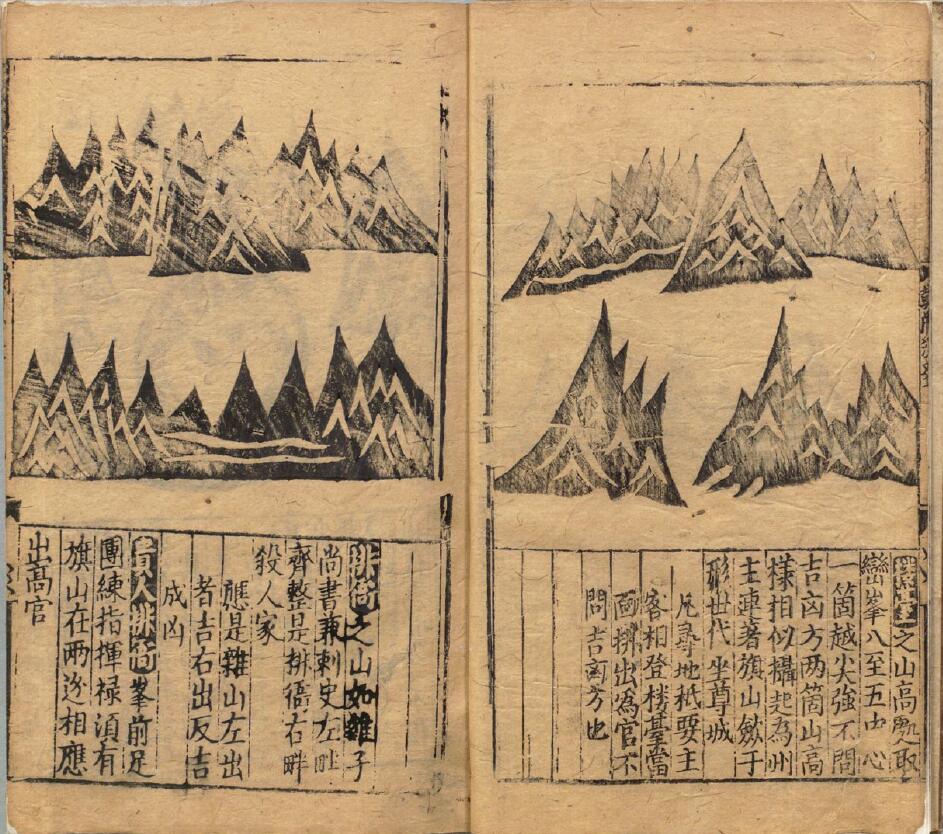 之山高取
巒峯八至五由心
一箇越尖強不問
吉凶方两箇山高
様相似攝起為州
主連著旗山歛子
形世代坐尊城
凡尋地秖要主
客相登楼臺當
面排出為官不
問吉凶方也
排衙之山如雞子
尚書兼刺史左畔
齊整是排衙右畔
殺人家
應是雞山左出
者吉右出反吉
成凶
貴人排衙峯前足
團練指揮禄湏有
旗山在两邊相應
出高官